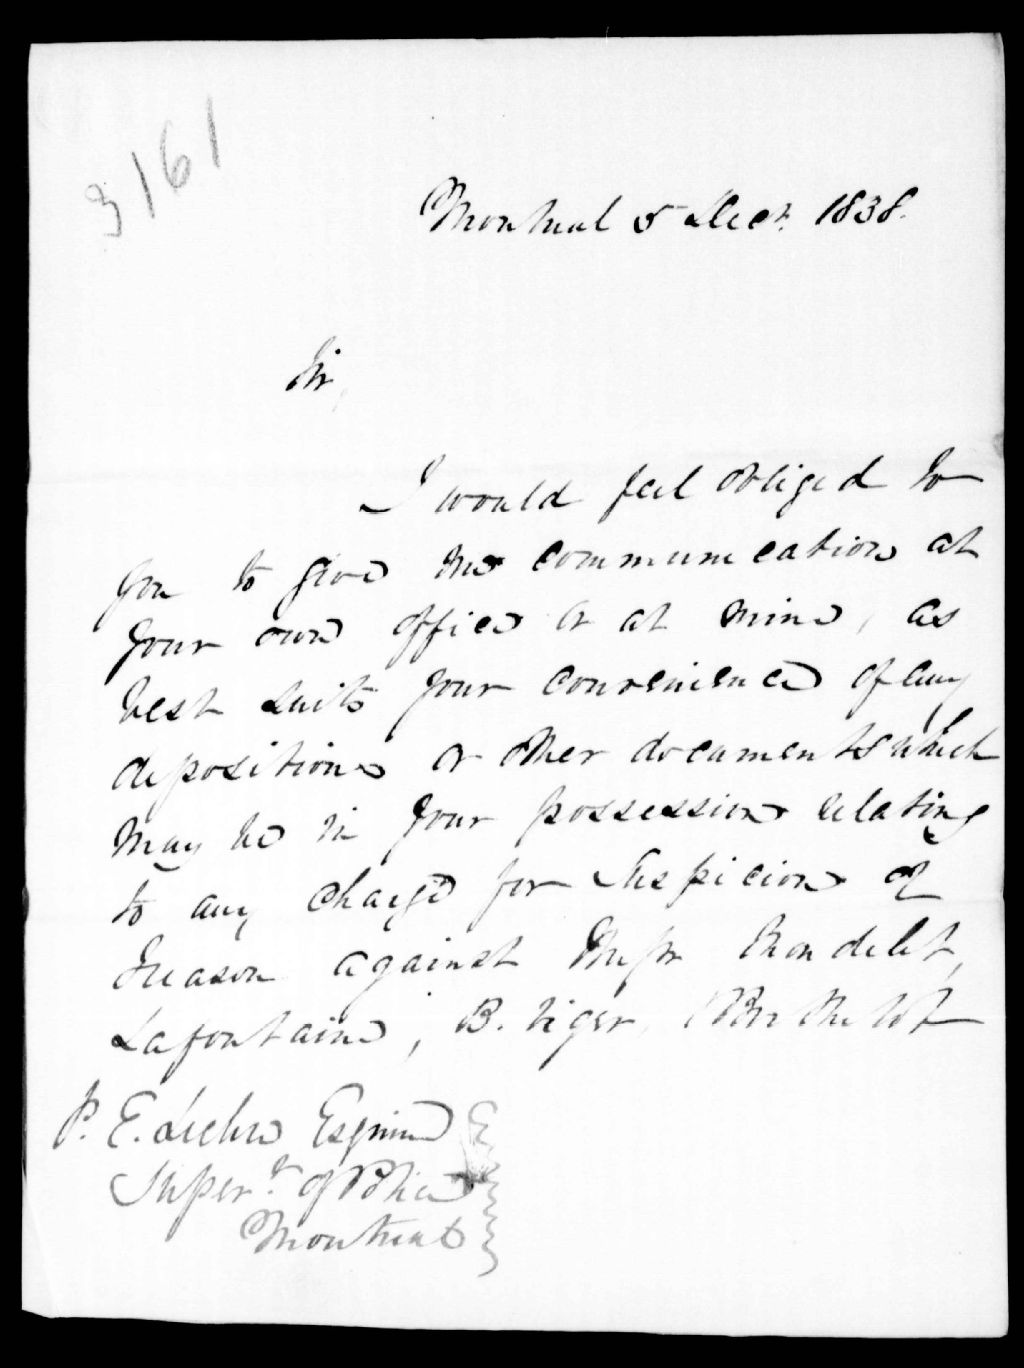 3161
Montreal 5 Decr. 1838.
Sir,
I would feel obliged to
you to give me communication at
your own office or at mine, as
best suits your convenience of any
depositions or other documents which
may be in your possession relating
to any charge for Suspicion of
Treason against Messrs Mondelet,
Lafontaine, B. Viger, Berthelot
P. E. Leclere Esquire
Super.t of Police
Montreal